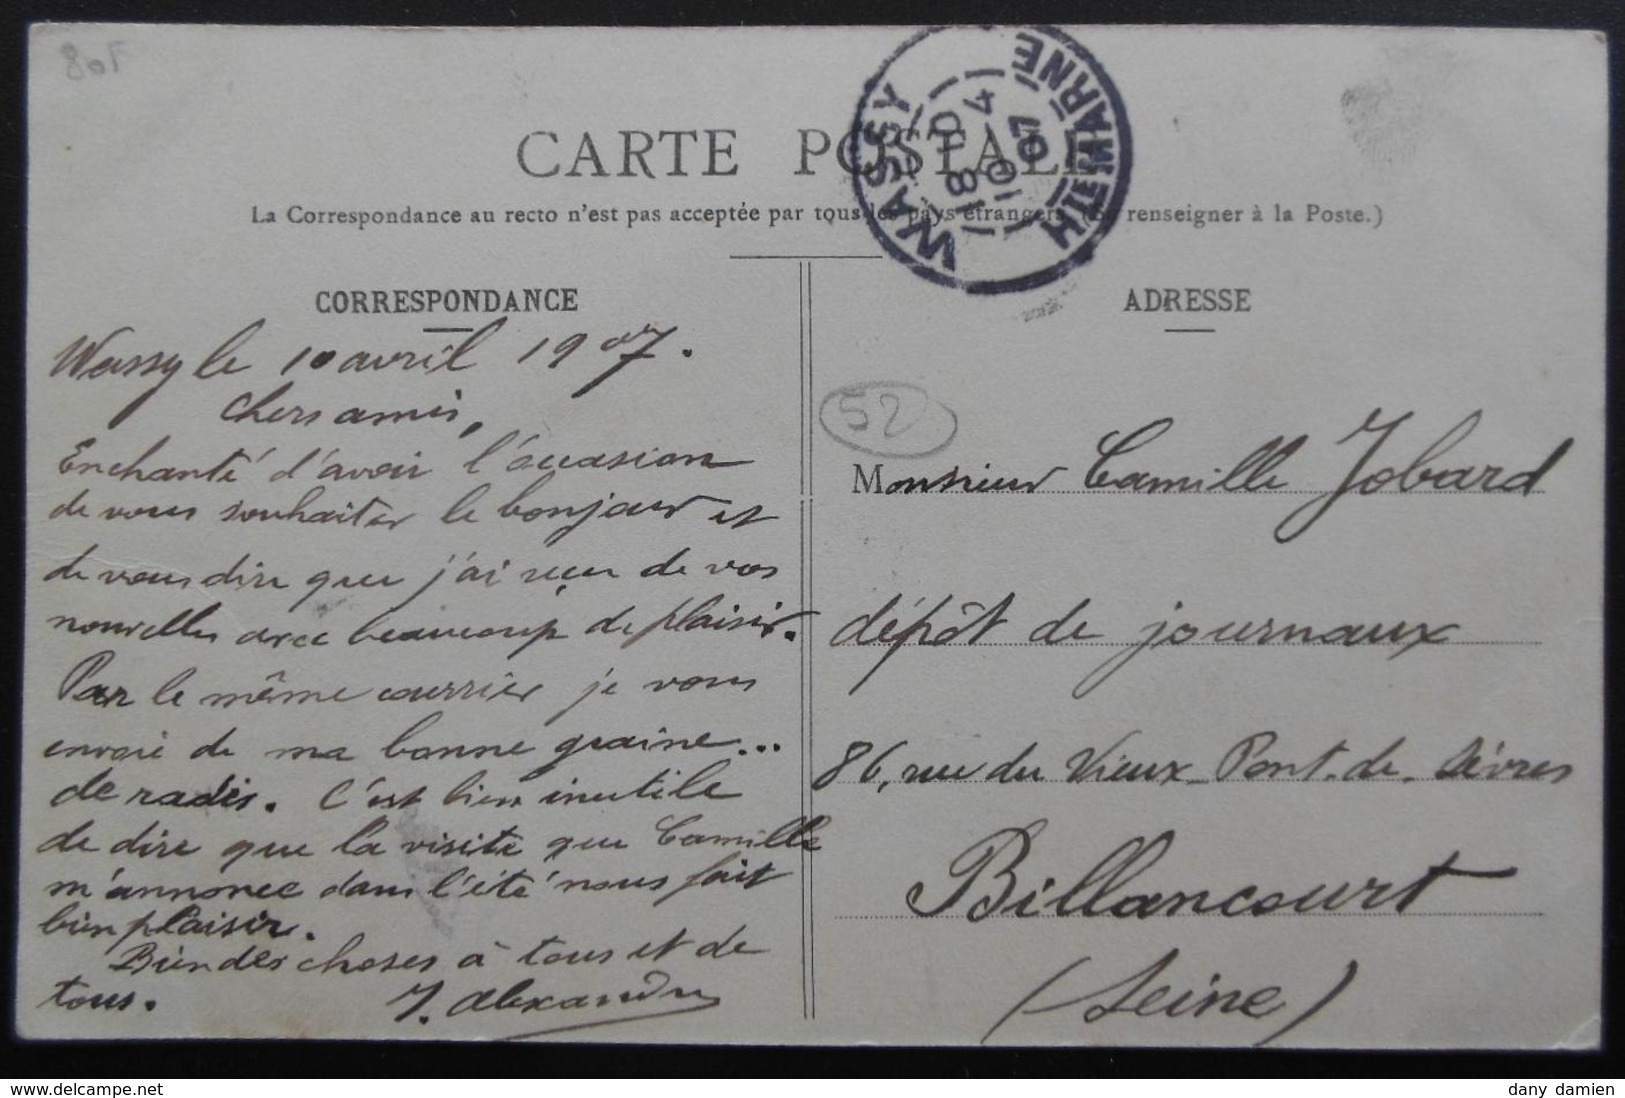 CARTE POSTALE
La Correspondance au recto n'est pas acceptée par tous les pays étrangers. (Se renseigner à la Poste.)
WASSY
HTE MARNE
18 10
10 4
07
CORRESPONDANCE
Wassy le 10 avril 1907.
Chers amis,
Enchanté d'avoir l'occasion
de vous souhaiter le bonjour et
de vous dire que j'ai reçu de vos
nouvelles avec beaucoup de plaisir.
Par le même courrier je vous
envoie de ma bonne graine...
de radis. C'est bien inutile
de dire que la visite que Camille
m'annonce dans l'été nous fait
bien plaisir.
Bien des choses à tous et de
tous. J. Alexandre
ADRESSE
52
Monsieur Camille Jobard
dépôt de journaux
86, rue du Vieux-Pont-de-Sèvres
Billancourt
(Seine)
www.delcampe.net
dany damien